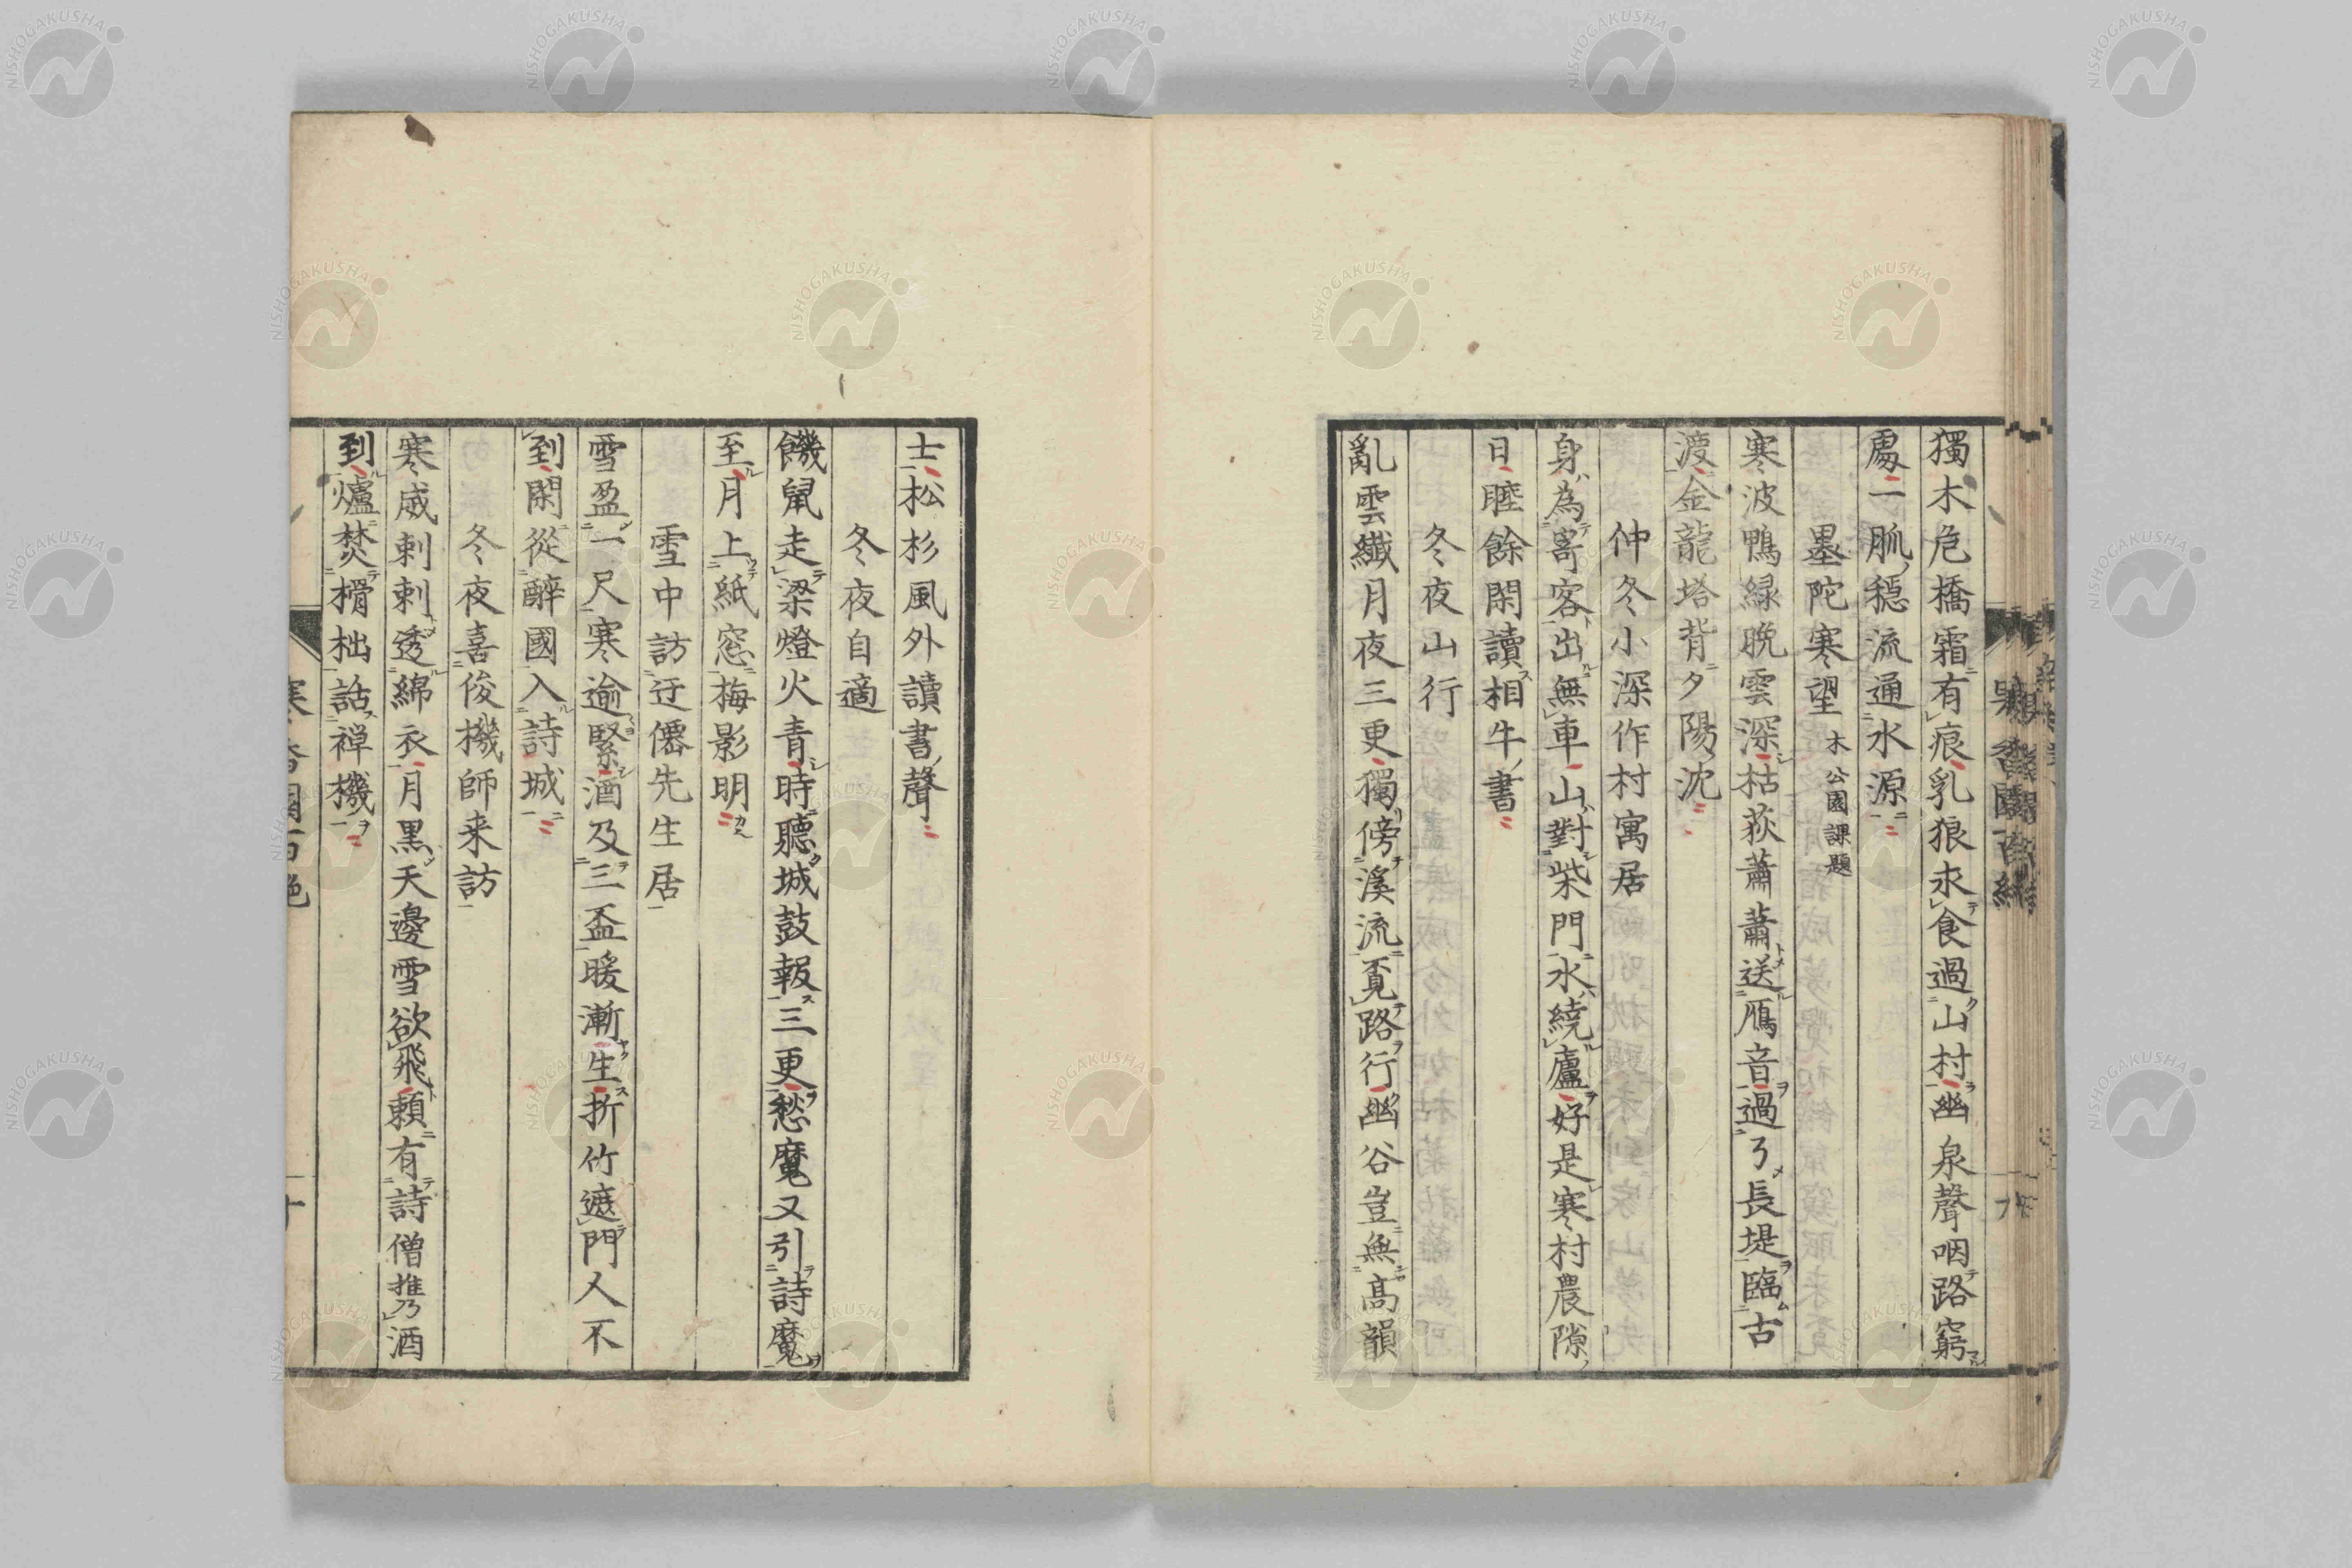 獨木危橋霜有痕乳狼求食過山村幽泉聲咽路窮
處一脈穩流通水源
墨陀寒望 木公園課題
寒波鴨緑晩雲深枯荻蕭蕭送鴈音過了長堤臨古
渡金龍塔背夕陽沈
仲冬小深作村寓居
身為寄客出無車山對柴門水繞廬好是寒村農隙
日瞠餘閑讀相牛書
冬夜山行
亂雲纖月夜三更獨傍溪流覓路行幽谷豈無高韻
士松杉風外讀書聲
冬夜自適
饑鼠走梁燈火青時聽城鼓報三更愁魔又引詩魔
至月上紙窓梅影明
雪中訪迂僊先生居
雪盈一尺寒逾緊酒及三盃暖漸生折竹遮門人不
到閑從醉國入詩城
冬夜喜俊機師来訪
寒威剌剌透綿衣月黒天邊雪欲飛頼有詩僧携酒
到爐焚榾柮話禅機